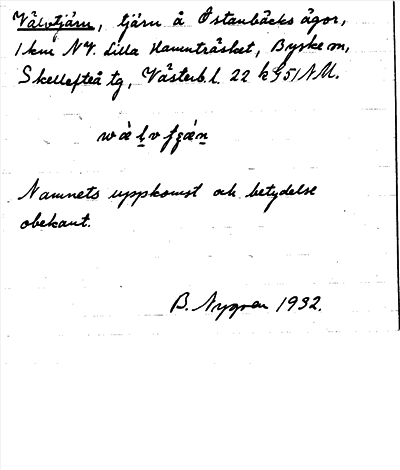 Välvtjärn, tjärn å Östanbäcks ägor,
1 km NV. Lilla Hamnträsket, Byske sn,
Skellefteå tg, Västerb. l. 22 k 9 51 NM.
Namnets uppkomst och betydelse
obekant.
B. Nygren 1932.